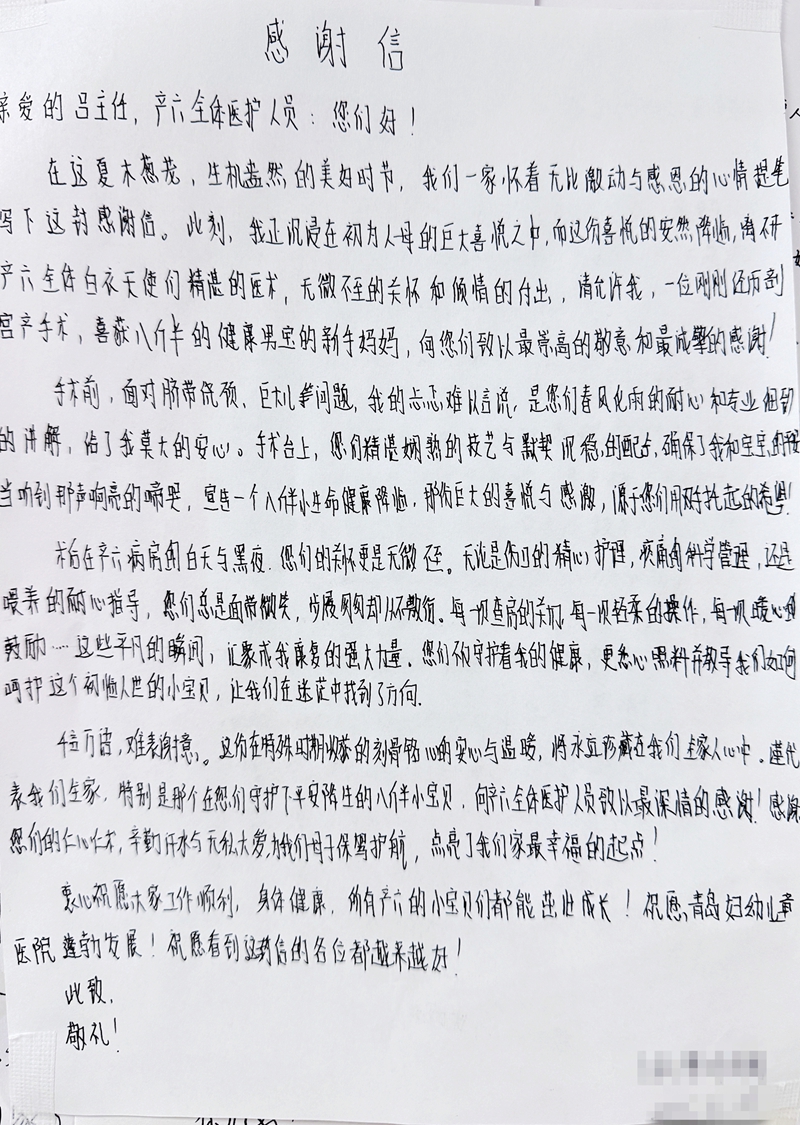 感谢信
亲爱的吕主任，产六全体医护人员：您们好！
在这夏木葱茏，生机盎然的美好时节，我们一家怀着无比激动与感恩的心情提笔
写下这封感谢信。此刻，我正沉浸在初为人母的巨大喜悦之中，而这份喜悦的安然降临，离不开
产六全体白衣天使们精湛的医术，无微不至的关怀和倾情的付出，请允许我，一位刚刚经历剖
宫产手术，喜获八斤半的健康男宝的新手妈妈，向您们致以最崇高的敬意和最诚挚的感谢！
手术前，面对脐带绕颈、巨大儿等问题，我的忐忑难以言说，是您们春风化雨的耐心和专业细致
的讲解，给了我莫大的安心。手术台上，您们精湛娴熟的技艺与默契沉稳的配合，确保了我和宝宝的
当听到那声响亮的啼哭，宣告一个八斤半小生命健康降临，那份巨大的喜悦与感激，源于您们用双手托起的希望！
术后在产六病房的白天与黑夜，您们的关怀更是无微不至。无论是伤口的精心护理，疼痛的科学管理，还是
喂养的耐心指导，您们总是面带微笑，步履匆匆却从不敷衍。每一次查房的关切，每一次轻柔的操作，每一次暖心的
鼓励……这些平凡的瞬间，汇聚成我康复的强大力量。您们不仅守护着我的健康，更悉心照料并教导我们如何
呵护这个初临人世的小宝贝，让我们在迷茫中找到了方向。
千言万语，难表谢意。这份在特殊时期收获的刻骨铭心的安心与温暖，将永远珍藏在我们全家人心中。谨代
表我们全家，特别是那个在您们守护下平安降生的八斤半小宝贝，向产六全体医护人员致以最深情的感谢！感谢
您们的仁心仁术，辛勤汗水与无私大爱，为我们母子保驾护航，点亮了我们家最幸福的起点！
衷心祝愿大家工作顺利，身体健康，所有产六的小宝贝们都能茁壮成长！祝愿青岛妇幼儿童
医院蓬勃发展！祝愿看到这封信的各位都越来越好！
此致，
敬礼！